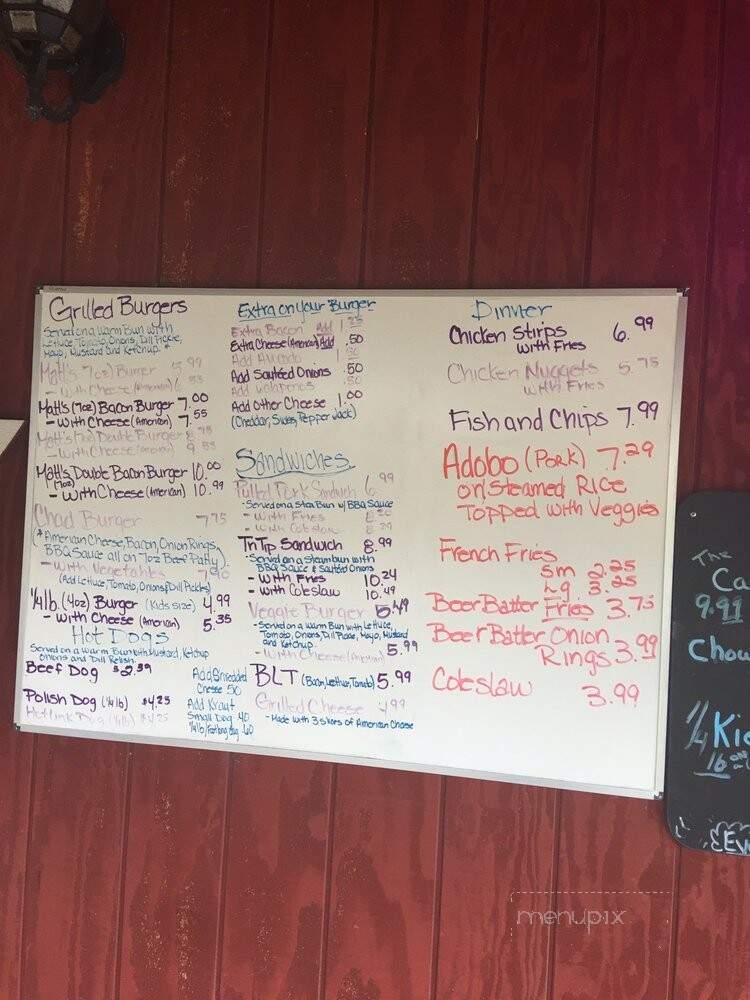 Grilled Burgers
Served on a Warm Bun with
Lettuce, Tomato, Onions, Dill Pickle,
Mayo, Mustard and Ketchup.
Matt's (7oz) Burger 5.99
- with Cheese (American) 6
Matt's (7oz) Bacon Burger 7.00
- with Cheese (American) 7.55
Matt's (7oz) Double Burger
- with Cheese (American) 9
Matt's Double Bacon Burger 10.00
(7oz)
- with Cheese (American) 10.99
Chad Burger 7.75
(*American Cheese, Bacon, Onion Rings,
BBQ Sauce all on 7oz Beef Patty)
- with Vegetables 7.90
(Add Lettuce, Tomato, Onions & Dill Pickles)
1/4 lb. (4oz) Burger (Kids size) 4.99
- with Cheese (American) 5.35
Hot Dogs
Served on a Warm Bun with Mustard, Ketchup
Onions and Dill Relish.
Beef Dog
Polish Dog (1/4 lb) $4.25
Hot Link Dog (1/4 lb) $4.25
Add Shredded
Cheese .50
Add Kraut
Small Dog .40
1/4 lb/Footlong dog .60
Extra on your Burger
Extra Bacon Add 1.
Extra Cheese (American) Add .50
Add Avocado 1.
Add Sautéed Onions .50
Add Jalapenos .50
Add Other Cheese 1.00
(Cheddar, Swiss, Pepper Jack)
Sandwiches
Pulled Pork Sandwich 6.99
- Served on a Sta Bun w/ BBQ Sauce
- with Fries
- with Coleslaw
Tri Tip Sandwich 8.99
- Served on a Steam bun with
BBQ Sauce & Sautéed Onions
- with Fries 10.24
- with Coleslaw 10.49
Veggie Burger 5.49
- Served on a Warm Bun with Lettuce,
Tomato, Onions, Dill Pickle, Mayo, Mustard
and Ketchup.
- with Cheese (American) 5.99
BLT (Bacon, Lettuce, Tomato) 5.99
Grilled Cheese 4.99
- Made with 3 slices of American Cheese
Dinner
Chicken Strips 6.99
with Fries
Chicken Nuggets 5.75
with Fries
Fish and Chips 7.99
Adobo (Pork) 7.29
on Steamed Rice
Topped with Veggies
French Fries
Sm 2.25
Lg 3.25
Beer Batter Fries 3.75
Beer Batter Onion
Rings 3.99
Coleslaw 3.99
The
Ca
9.99
Chow
1/4 Kie
16
Ev
menupix